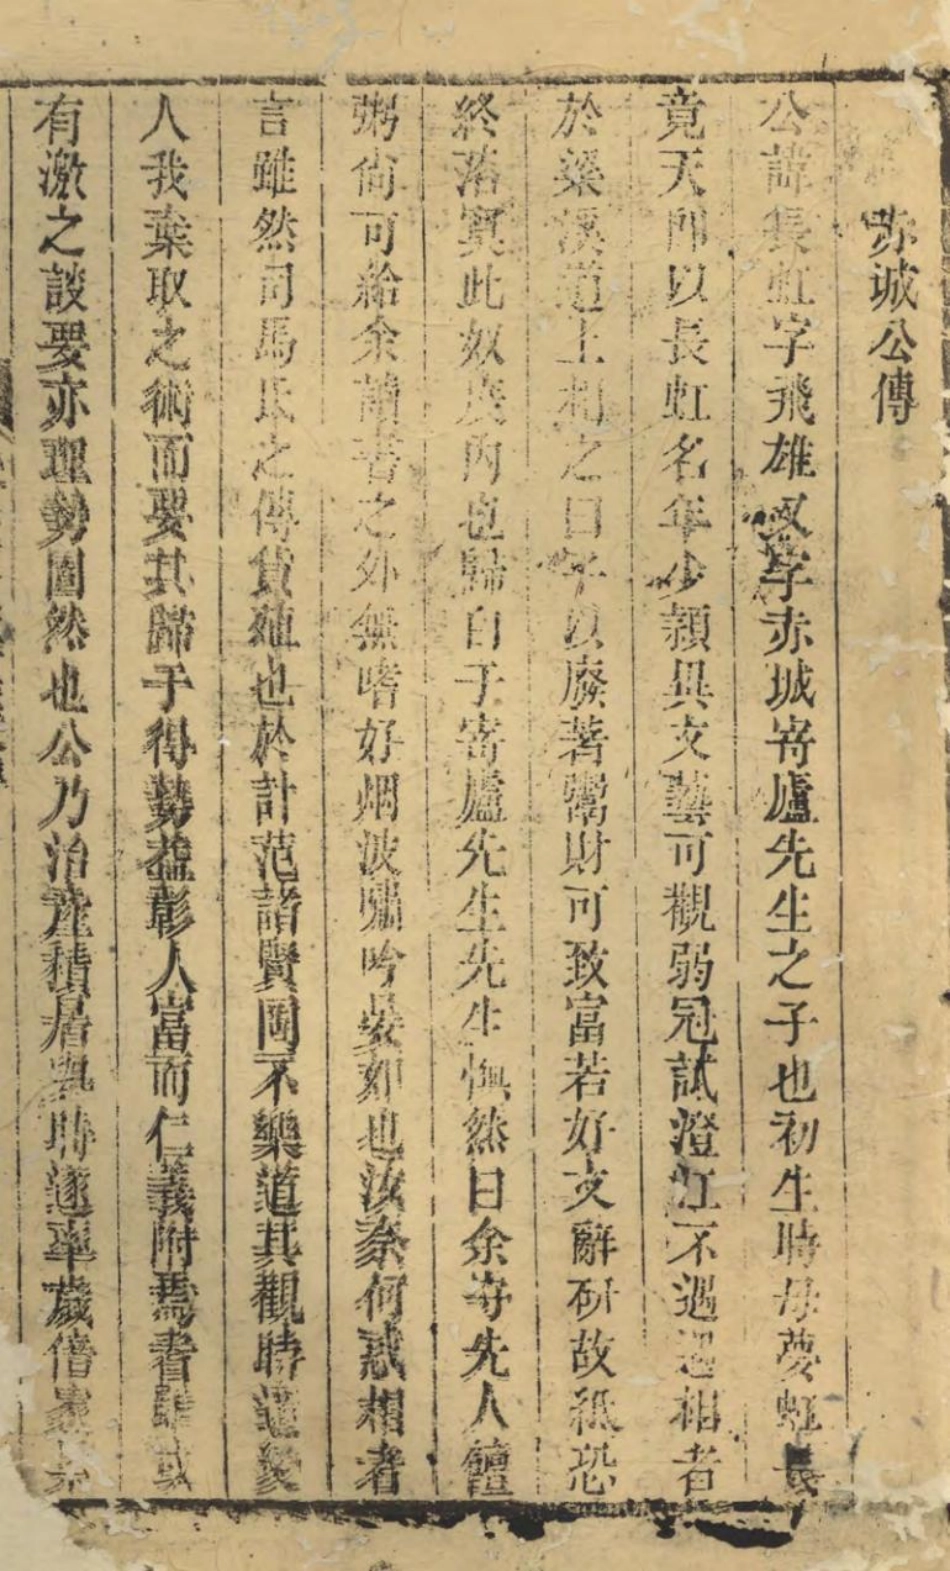 赤诚公傳
公諱長虹字飛雄又字赤城寄廬先生之子也初生時母夢虹長
竟天卽以長虹名年少穎異文藝可觀弱冠試澄江不遇遇相者
於梁溪道上相之曰子以廢著鬻財可致富若好文辭研故紙恐
終落寞此奴庋內也歸白于寄廬先生先生憮然曰余守先人饘
粥尙可給余讀書之外無嗜好烟波嘯吟晏如也汝奈何惑相者
言雖然司馬氏之傳貨殖也於計范諸賢罔不樂道其觀時通變
人我棄取之術而要其歸于得勢益彰人富而仁義附焉者雖或
有激之談要亦理勢固然也公乃治產積居與時逐率歲倍